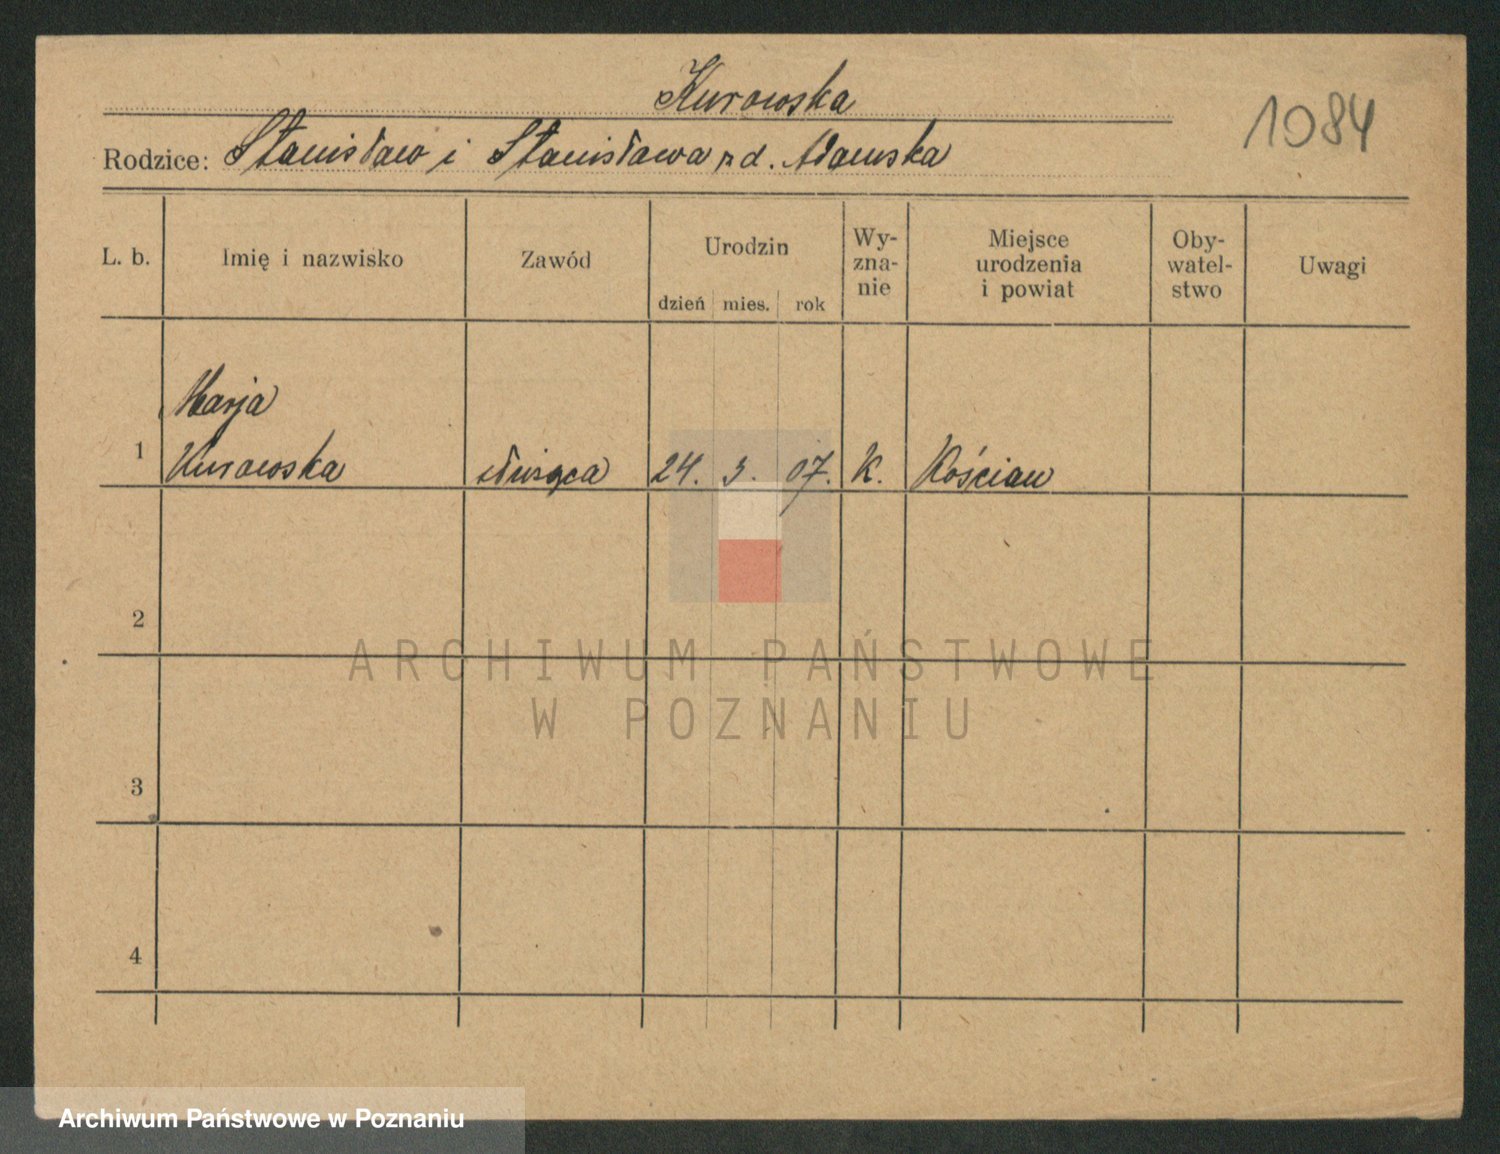 Kurowska
1084
Rodzice: Stanisław i Stanisława rd. Adamska
L. b. Imię i nazwisko Zawód Urodzin dzień mies. rok Wy-zna-nie Miejsce urodzenia i powiat Oby-watel-stwo Uwagi
Marja
1 Kurowska służąca 24. 3. 07. K. Kościan
2
ARCHIWUM PAŃSTWOWE
W POZNANIU
3
4
Archiwum Państwowe w Poznaniu